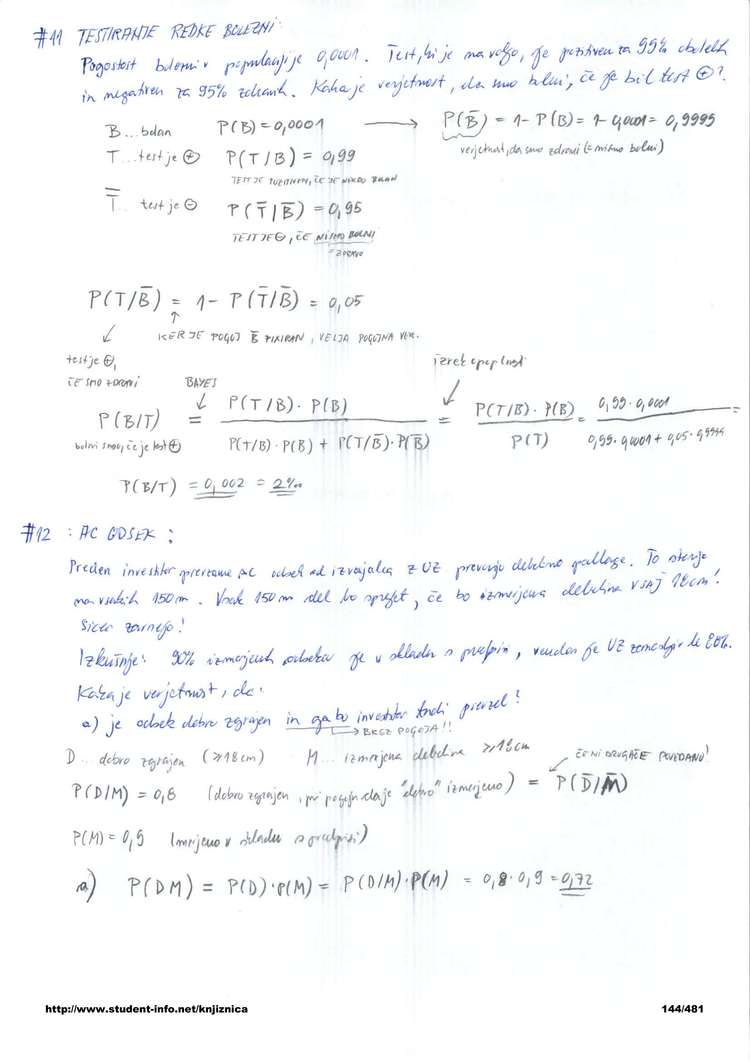 #11 TESTIRANJE REDKE BOLEZNI:
Pogostost bolezni v populaciji je 0,0001. Test, ki je na voljo, je pozitiven za 99% obolelih
in negativen za 95% zdravih. Kaka je verjetnost, da smo bolni, če je bil test ⊕?
B... bolan P(B) = 0,0001 ⟶ P(B̄) = 1 - P(B) = 1 - 0,0001 = 0,9995
T... test je ⊕ P(T/B) = 0,99 verjetnost, da smo zdravi (= nismo bolni)
TEST JE POZITIVEN, ČE JE NEKDO BOLAN
T̄... test je ⊖ P(T̄/B̄) = 0,95
TEST JE ⊖, ČE NISMO BOLNI
= ZDRAVI
P(T/B̄) = 1 - P(T̄/B̄) = 0,05
↑
KER JE POGOJ B̄ FIKSIRAN, VELJA POGOJNA VER.
test je ⊕, izrek o pop. verj.
ČE SMO ZDRAVI BAYES
P(B/T) = P(T/B)·P(B) / P(T/B)·P(B) + P(T/B̄)·P(B̄) = P(T/B)·P(B) / P(T) = 0,99·0,0001 / 0,99·0,0001 + 0,05·0,9999 =
bolni smo, če je test ⊕
P(B/T) = 0,002 = 2‰
#12 : AC ODSEK :
Preden investitor prevzame AC odsek od izvajalca z UZ preverijo debelino podlage. To storijo
na vsakih 150 m. Vsak 150 m del bo sprejet, če bo izmerjena debelina VSAJ 18 cm!
Sicer zavrnejo!
Izkušnje: 90% izmerjenih odsekov je v skladu s predpisi, vendar je UZ zanesljiv le 80%.
Kaka je verjetnost, da:
a) je odsek dobro zgrajen in ga bo investitor tudi prevzel?
→ BREZ POGOJA!!
D... dobro zgrajen (≥18cm) M... izmerjena debelina ≥18cm ČE NI DRUGAČE POVEDANO!
P(D/M) = 0,8 (dobro zgrajen, pri pogoju da je "dobro" izmerjeno) = P(D̄/M̄)
P(M) = 0,9 (merjeno v skladu s predpisi)
a) P(DM) = P(D)·P(M) = P(D/M)·P(M) = 0,8·0,9 = 0,72
http://www.student-info.net/knjiznica 144/481